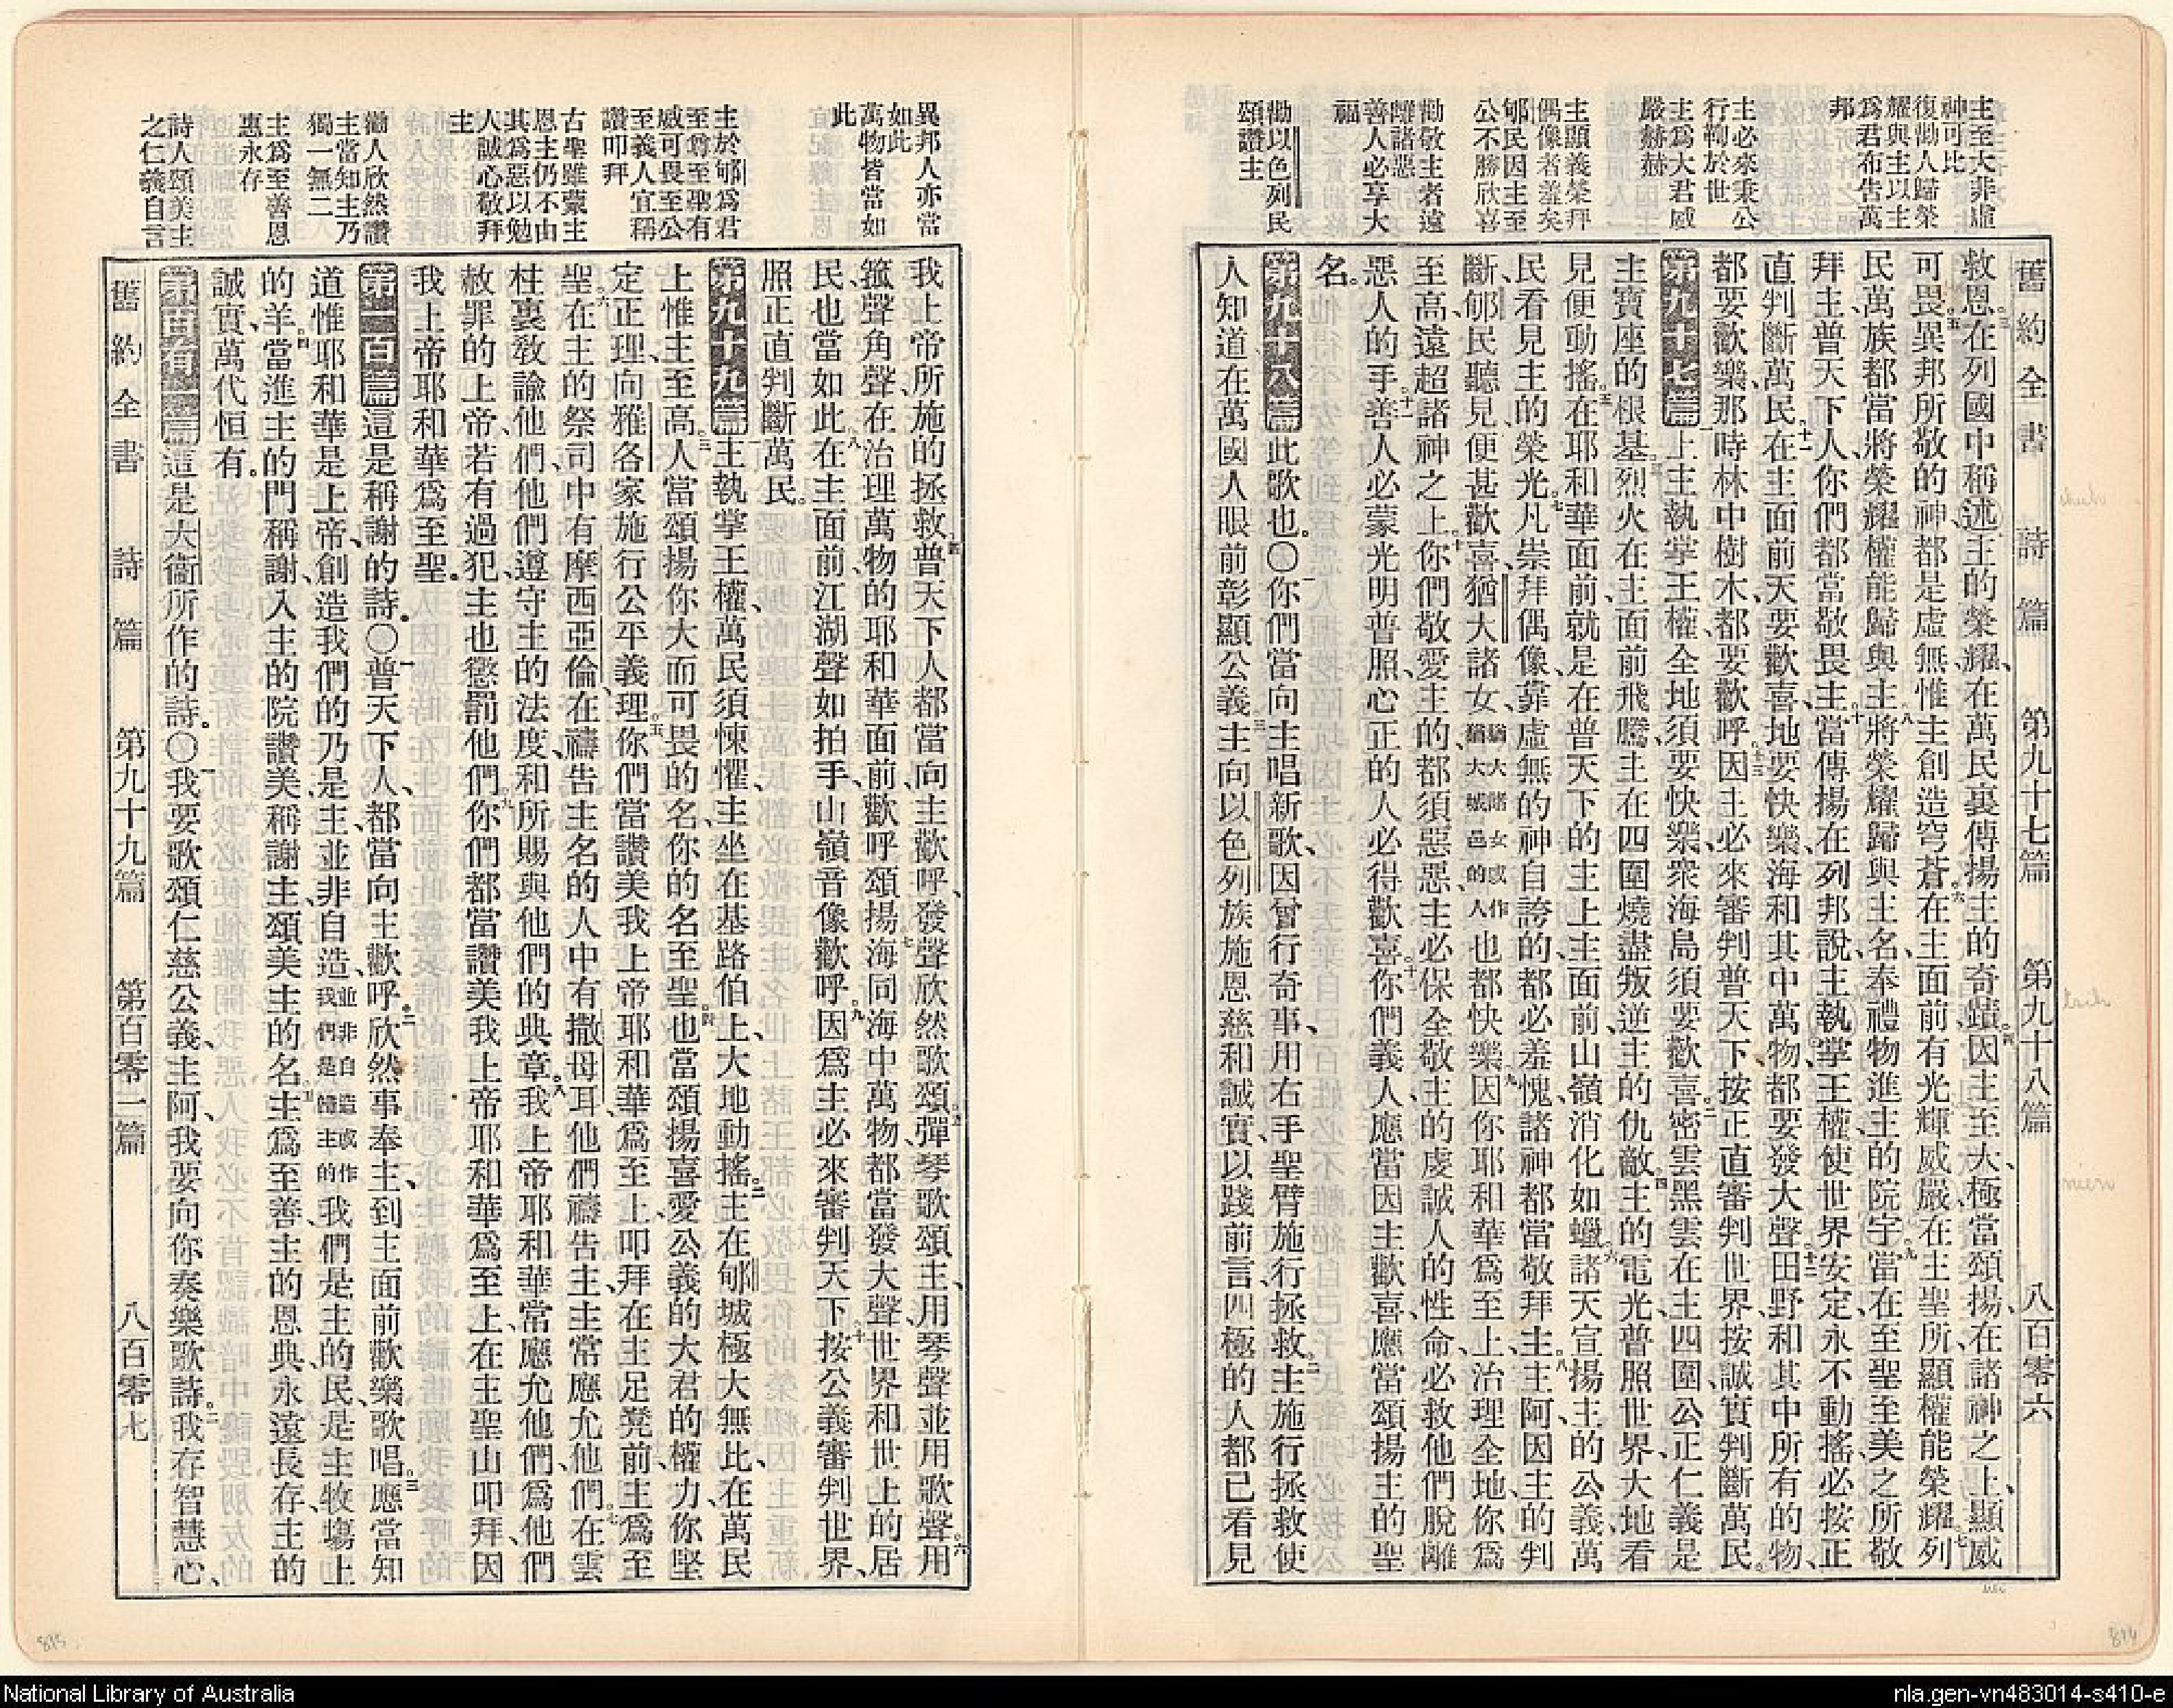 舊約全書 詩篇 第九十七篇 第九十八篇 八百零六
主至大非虛
神可比
復勸人歸榮
耀與主以主
爲君布告萬
邦
主必來秉公
行鞫於世
主爲大君威
嚴赫赫
主顯義榮拜
偶像者羞矣
郇民因主至
公不勝欣喜
勸敬主者遠
離諸惡
善人必享大
福
勸以色列民
頌讚主
救恩、三在列國中稱述主的榮耀、在萬民裏傳揚主的奇蹟。四因主至大、極當頌揚、在諸神之上、顯威
可畏。五異邦所敬的神、都是虛無、惟主創造穹蒼。六在主面前有光輝威嚴、在主聖所顯權能榮耀。七列
民萬族都當將榮耀權能歸與主。八將榮耀歸與主名、奉禮物進主的院宇。九當在至聖至美之所敬
拜主、普天下人、你們都當敬畏主。十當傳揚在列邦說、主執掌王權、使世界安定、永不動搖、必按正
直判斷萬民。十一在主面前、天要歡喜、地要快樂、海和其中萬物都要發大聲。十二田野和其中所有的物、
都要歡樂、那時林中樹木、都要歡呼。十三因主必來審判普天下、按正直審判世界、按誠實判斷萬民。
第九十七篇一上主執掌王權、全地須要快樂、衆海島須要歡喜。二密雲黑雲在主四圍、公正仁義是
主寶座的根基。三烈火在主面前飛騰、主在四圍燒盡叛逆主的仇敵。四主的電光、普照世界、大地看
見便動搖。五在耶和華面前、就是在普天下的主上主面前、山嶺消化如蠟。六諸天宣揚主的公義、萬
民看見主的榮光。七凡崇拜偶像、靠虛無的神自誇的、都必羞愧、諸神都當敬拜主。八主阿、因主的判
斷、郇民聽見便甚歡喜、猶大諸女猶大諸女或作猶大城邑的人也都快樂。九因你耶和華爲至上、治理全地、你爲
至高、遠超諸神之上。十你們敬愛主的、都須惡惡、主必保全敬主的虔誠人的性命、必救他們脫離
惡人的手。十一善人必蒙光明普照、心正的人必得歡喜。十二你們義人應當因主歡喜、應當頌揚主的聖
名。
第九十八篇此歌也。〇一你們當向主唱新歌、因曾行奇事、用右手聖臂施行拯救。二主施行拯救、使
人知道、在萬國人眼前彰顯公義。三主向以色列族施恩慈和誠實、以踐前言、四極的人都已看見
異邦人亦當
如此
萬物皆當如
此
主於郇爲君
至尊至聖有
威可畏至公
至義人宜稱
讚叩拜
古聖雖蒙主
恩主仍不由
其爲惡以勉
人誠心敬拜
主
勸人欣然讚
主當知主乃
獨一無二
主爲至善恩
惠永存
詩人頌美主
之仁義自言
我上帝所施的拯救。四普天下人都當向主歡呼、發聲欣然歌頌。五彈琴歌頌主、用琴聲並用歌聲。六用
箛聲角聲、在治理萬物的耶和華面前、歡呼頌揚。七海同海中萬物、都當發大聲、世界和世上的居
民也當如此。八在主面前、江湖聲如拍手、山嶺音像歡呼。九因爲主必來審判天下、十按公義審判世界、
照正直判斷萬民。
第九十九篇一主執掌王權、萬民須悚懼、主坐在基路伯上、大地動搖。二主在郇城極大無比、在萬民
上惟主至高。三人當頌揚你大而可畏的名、你的名至聖。四也當頌揚喜愛公義的大君的權力、你堅
定正理、向雅各家施行公平義理。五你們當讚美我上帝耶和華爲至上、叩拜在主足凳前、主爲至
聖。六在主的祭司中、有摩西亞倫、在禱告主名的人中、有撒母耳、他們禱告主、主常應允他們。七在雲
柱裏教諭他們、他們遵守主的法度、和所賜與他們的典章。八我上帝耶和華、常應允他們、爲他們
赦罪的上帝、若有過犯、主也懲罰他們。九你們都當讚美我上帝耶和華爲至上、在主聖山叩拜、因
我上帝耶和華爲至聖。
第一百篇這是稱謝的詩。〇一普天下人、都當向主歡呼。二欣然事奉主、到主面前歡樂歌唱。三應當知
道惟耶和華是上帝、創造我們的乃是主、並非自造、並非自造或作我們是歸主的我們是主的民、是主牧場上
的羊。四當進主的門稱謝、入主的院讚美、稱謝主、頌美主的名。五主爲至善、主的恩典、永遠長存、主的
誠實、萬代恒有。
第一百有一篇這是大衞所作的詩。〇一我要歌頌仁慈公義、主阿、我要向你奏樂歌詩。二我存智慧心、
舊約全書 詩篇 第九十九篇 第百零一篇 八百零七
815
814
National Library of Australia
nla.gen-vn483014-s410-e